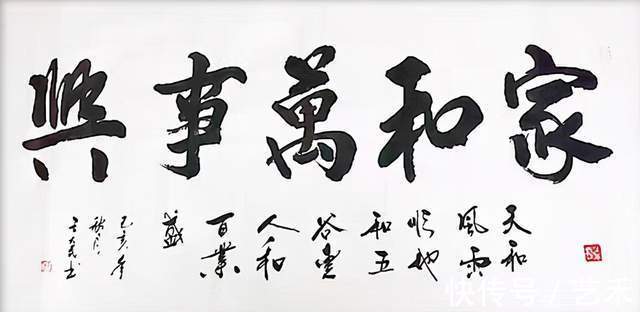 家和萬事興
天和
風雨
順地
和五
谷
人和
百業
盛
己亥年
秋月
书
快传号/艺禾